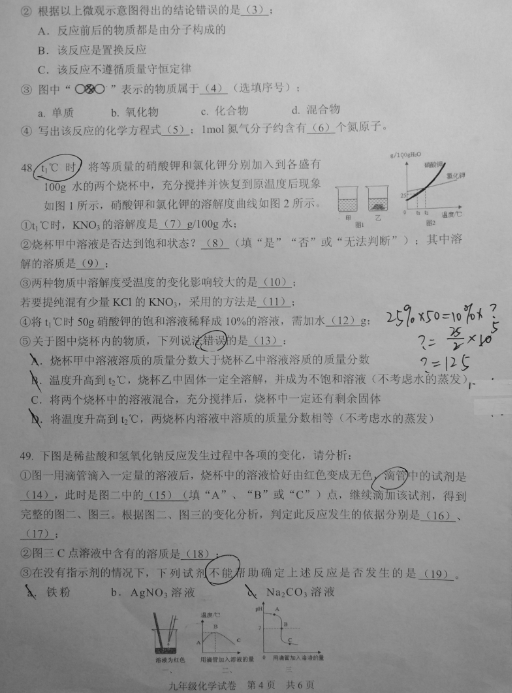 ② 根据以上微观示意图得出的结论错误的是（3）；
A．反应前后的物质都是由分子构成的
B．该反应是置换反应
C．该反应不遵循质量守恒定律
③ 图中“ ”表示的物质属于（4）（选填序号）；
a. 单质 b. 氧化物 c. 化合物 d. 混合物
④ 写出该反应的化学方程式（5）；1mol 氮气分子约含有（6）个氮原子。
48. t₁℃ 时，将等质量的硝酸钾和氯化钾分别加入到各盛有
100g 水的两个烧杯中，充分搅拌并恢复到原温度后现象
如图 1 所示，硝酸钾和氯化钾的溶解度曲线如图 2 所示。
g/100gH₂O
硝酸钾
氯化钾
甲 乙
图1
温度/℃
图2
①t₁℃时，KNO₃的溶解度是（7）g/100g 水；
②烧杯甲中溶液是否达到饱和状态？（8）（填“是”“否”或“无法判断”）；其中溶
解的溶质是（9）；
③两种物质中溶解度受温度的变化影响较大的是（10）；
若要提纯混有少量 KCl 的 KNO₃，采用的方法是（11）；
④将 t₁℃时 50g 硝酸钾的饱和溶液稀释成 10%的溶液，需加水（12）g；
25%×50=10%×?
?=
?=125
⑤关于图中烧杯内的物质，下列说法错误的是（13）；
A．烧杯甲中溶液溶质的质量分数大于烧杯乙中溶液溶质的质量分数
B．温度升高到 t₂℃，烧杯乙中固体一定全部溶解，并成为不饱和溶液（不考虑水的蒸发）
C．将两个烧杯中的溶液混合，充分搅拌后，烧杯中一定还有剩余固体
D．将温度升高到 t₂℃，两烧杯内溶液中溶质的质量分数相等（不考虑水的蒸发）
49. 下图是稀盐酸和氢氧化钠混合反应发生过程中各项的变化，请分析：
①图一用滴管滴入一定量的溶液后，烧杯中的溶液恰好由红色变成无色，滴管中的试剂是
（14），此时是图二中的（15）（填“A”、“B”或“C”）点，继续滴加该试剂，得到
完整的图二、图三。根据图二、图三的变化分析，判定此反应发生的依据分别是（16）、
（17）；
②图三 C 点溶液中含有的溶质是（18）；
③在没有指示剂的情况下，下列试剂不能帮助确定上述反应是否发生的是（19）。
a. 铁粉 b. AgNO₃ 溶液 c. Na₂CO₃ 溶液
温度/℃
A B C
pH
A
B
C
溶液为红色 用滴管加入溶液的量 用滴管加入溶液的量
一 二 三
九年级化学试卷 第 4 页 共 6 页